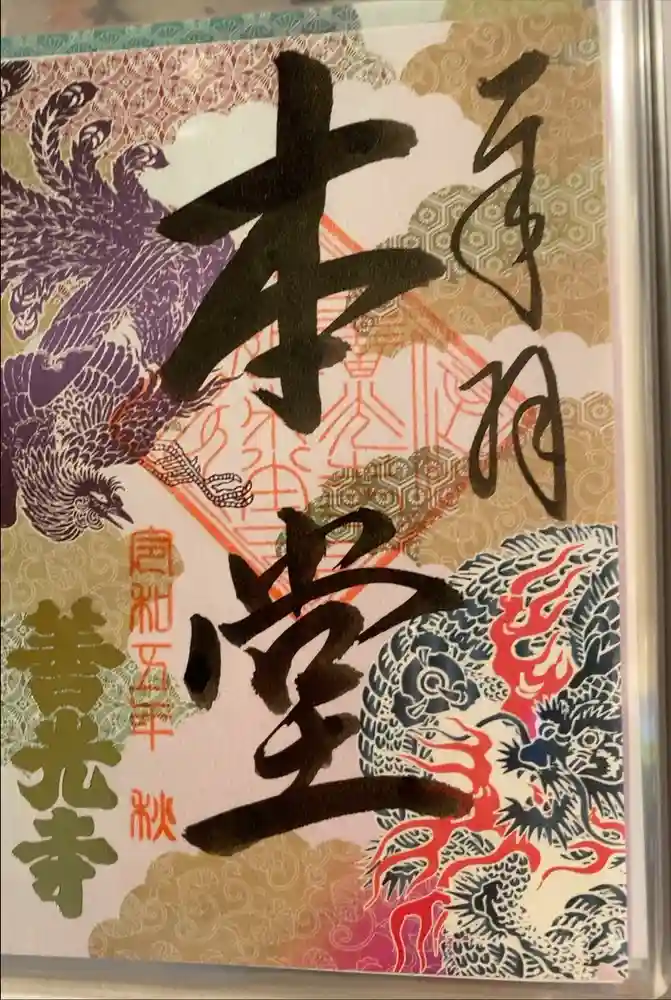 奉拝
本堂
令和五年 秋
善光寺